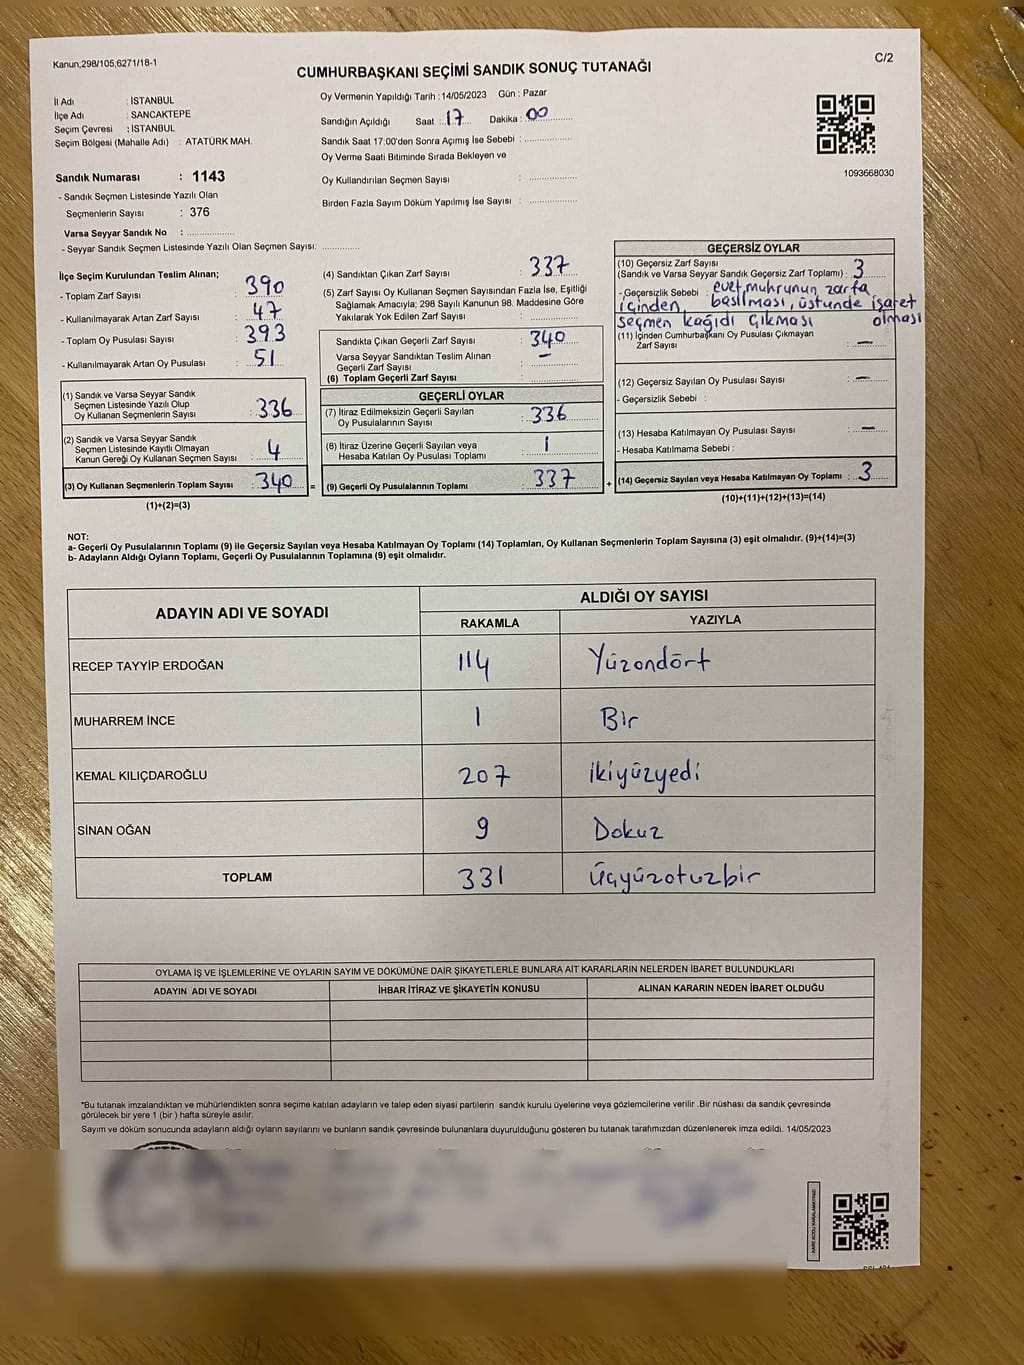 Kanun,298/105,6271/18-1
C/2
CUMHURBAŞKANI SEÇİMİ SANDIK SONUÇ TUTANAĞI
İl Adı : İSTANBUL
İlçe Adı : SANCAKTEPE
Seçim Çevresi : İSTANBUL
Seçim Bölgesi (Mahalle Adı) : ATATÜRK MAH.
Sandık Numarası : 1143
- Sandık Seçmen Listesinde Yazılı Olan
Seçmenlerin Sayısı : 376
Varsa Seyyar Sandık No : ..................
- Seyyar Sandık Seçmen Listesinde Yazılı Olan Seçmen Sayısı: ..............
Oy Vermenin Yapıldığı Tarih : 14/05/2023 Gün : Pazar
Sandığın Açıldığı Saat : 17 Dakika : 00
Sandık Saat 17:00'den Sonra Açımış İse Sebebi : ..............
Oy Verme Saati Bitiminde Sırada Bekleyen ve
Oy Kullandırılan Seçmen Sayısı : ..............
Birden Fazla Sayım Döküm Yapılmış İse Sayısı : ..............
1093668030
İlçe Seçim Kurulundan Teslim Alınan;
- Toplam Zarf Sayısı : 390
- Kullanılmayarak Artan Zarf Sayısı : 47
- Toplam Oy Pusulası Sayısı : 393
- Kullanılmayarak Artan Oy Pusulası : 51
(1) Sandık ve Varsa Seyyar Sandık
Seçmen Listesinde Yazılı Olup
Oy Kullanan Seçmenlerin Sayısı : 336
(2) Sandık ve Varsa Seyyar Sandık
Seçmen Listesinde Kayıtlı Olmayan
Kanun Gereği Oy Kullanan Seçmen Sayısı : 4
(3) Oy Kullanan Seçmenlerin Toplam Sayısı : 340 =
(1)+(2)=(3)
(4) Sandıktan Çıkan Zarf Sayısı : 337
(5) Zarf Sayısı Oy Kullanan Seçmen Sayısından Fazla İse, Eşitliği
Sağlamak Amacıyla; 298 Sayılı Kanunun 98. Maddesine Göre
Yakılarak Yok Edilen Zarf Sayısı : ..............
Sandıkta Çıkan Geçerli Zarf Sayısı : 340
Varsa Seyyar Sandıktan Teslim Alınan –
Geçerli Zarf Sayısı : ..............
(6) Toplam Geçerli Zarf Sayısı : ..............
GEÇERLİ OYLAR
(7) İtiraz Edilmeksizin Geçerli Sayılan
Oy Pusulalarının Sayısı : 336
(8) İtiraz Üzerine Geçerli Sayılan veya
Hesaba Katılan Oy Pusulası Toplamı : 1
(9) Geçerli Oy Pusulalarının Toplamı : 337 +
GEÇERSİZ OYLAR
(10) Geçersiz Zarf Sayısı
(Sandık ve Varsa Seyyar Sandık Geçersiz Zarf Toplamı) : 3
- Geçersizlik Sebebi : evet muhrunun zarfa
içinden basılması, üstunde işaret
seçmen kağıdı çıkması olması
(11) İçinden Cumhurbaşkanı Oy Pusulası Çıkmayan
Zarf Sayısı : –
(12) Geçersiz Sayılan Oy Pusulası Sayısı : –
- Geçersizlik Sebebi :
(13) Hesaba Katılmayan Oy Pusulası Sayısı : –
- Hesaba Katılmama Sebebi :
(14) Geçersiz Sayılan veya Hesaba Katılmayan Oy Toplamı : 3
(10)+(11)+(12)+(13)=(14)
NOT:
a- Geçerli Oy Pusulalarının Toplamı (9) ile Geçersiz Sayılan veya Hesaba Katılmayan Oy Toplamı (14) Toplamları, Oy Kullanan Seçmenlerin Toplam Sayısına (3) eşit olmalıdır. (9)+(14)=(3)
b- Adayların Aldığı Oyların Toplamı, Geçerli Oy Pusulalarının Toplamına (9) eşit olmalıdır.
ADAYIN ADI VE SOYADI ALDIĞI OY SAYISI
RAKAMLA YAZIYLA
RECEP TAYYİP ERDOĞAN 114 Yüzondört
MUHARREM İNCE 1 Bir
KEMAL KILIÇDAROĞLU 207 ikiyüzyedi
SİNAN OĞAN 9 Dokuz
TOPLAM 331 Üçyüzotuzbir
OYLAMA İŞ VE İŞLEMLERİNE VE OYLARIN SAYIM VE DÖKÜMÜNE DAİR ŞİKAYETLERLE BUNLARA AİT KARARLARIN NELERDEN İBARET BULUNDUKLARI
ADAYIN ADI VE SOYADI İHBAR İTİRAZ VE ŞİKAYETİN KONUSU ALINAN KARARIN NEDEN İBARET OLDUĞU
*Bu tutanak imzalandıktan ve mühürlendikten sonra seçime katılan adayların ve talep eden siyasi partilerin sandık kurulu üyelerine veya gözlemcilerine verilir .Bir nüshası da sandık çevresinde
görülecek bir yere 1 (bir ) hafta süreyle asılır.
Sayım ve döküm sonucunda adayların aldığı oyların sayılarını ve bunların sandık çevresinde bulunanlara duyurulduğunu gösteren bu tutanak tarafımızdan düzenlenerek imza edildi. 14/05/2023